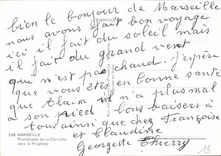 bien le bonjour de Marseille
nous avons fait bon voyage
ici il fait du soleil mais
il fait du grand vent
qui n'est pas chaud. J'espère
que vous êtes en bonne santé
que Alain n'a plus mal
à son pied bons baisers à
tous ainsi que chez Françoise
et Claudine
Georgette Thierry
MARSEILLE
Promenade de la Corniche
vers le Prophète